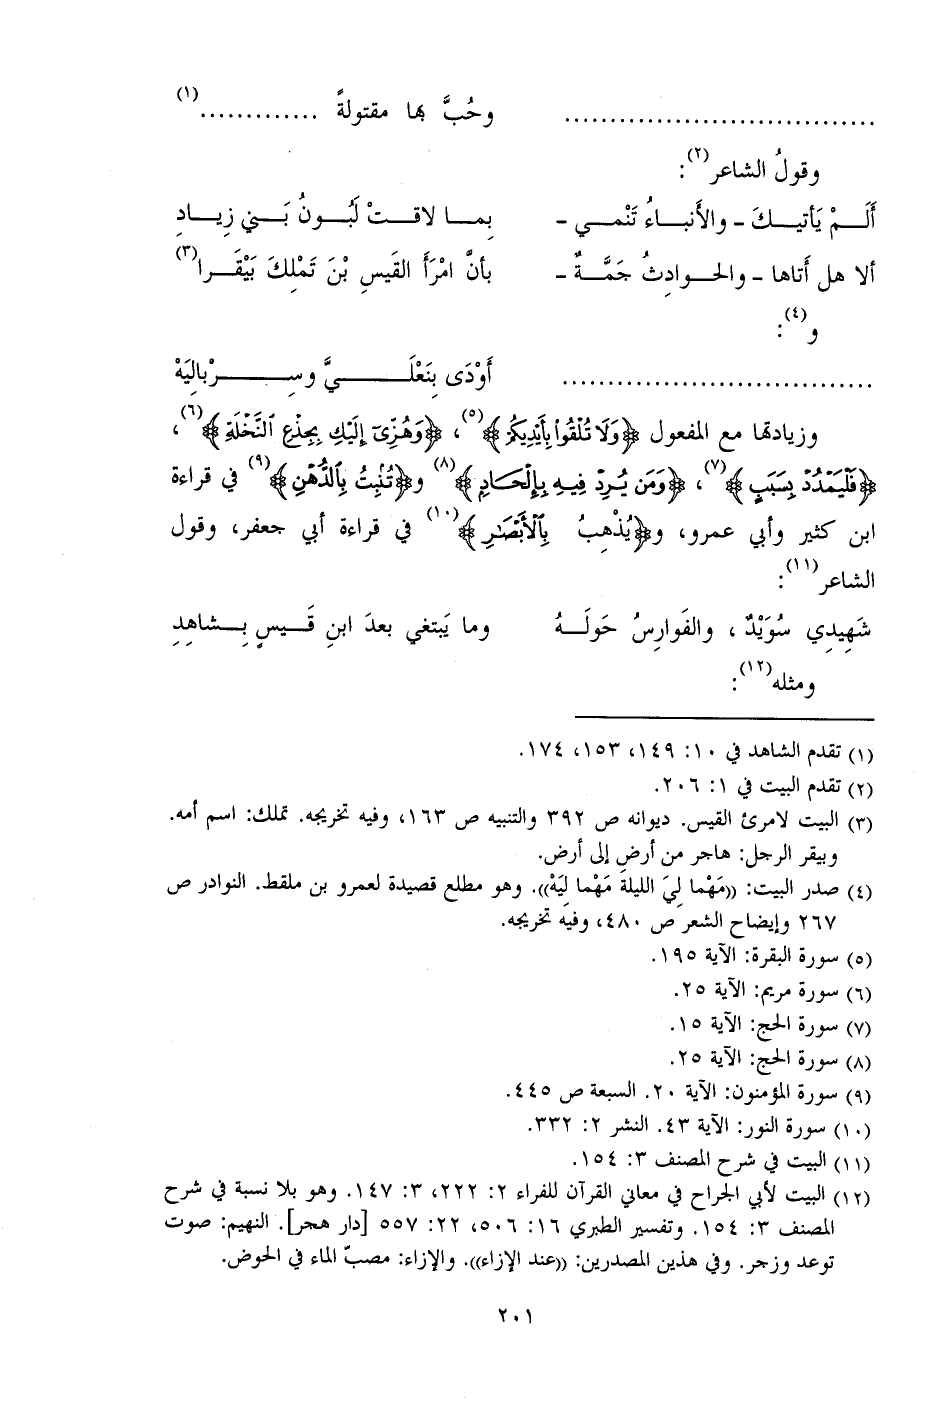 ................................ وحُبَّ بها مقتولةً .............(١)
وقولُ الشاعر(٢):
أَلَــمْ يَأتيــكَ - والأنبــاءُ تَنْمــي - بِمــا لاقــتْ لَبُــونُ بَــني زِيــادِ
ألا هل أَتاها - والحــوادِثُ جَمَّــةٌ - بأنَّ امْرَأَ القَيسِ بْنَ تَمْلِكَ بَيْقَــرا(٣)
و(٤):
................................ أَوْدَى بِنَعْلَــيَّ وسِــرْبالِيَهْ
وزيادتها مع المفعول ﴿وَلَا تُلْقُوا۟ بِأَيْدِيكُمْ﴾(٥)، ﴿وَهُزِّىٓ إِلَيْكِ بِجِذْعِ ٱلنَّخْلَةِ﴾(٦)،
﴿فَلْيَمْدُدْ بِسَبَبٍ﴾(٧)، ﴿وَمَن يُرِدْ فِيهِ بِإِلْحَادٍ﴾(٨) و﴿تُنْبِتُ بِٱلدُّهْنِ﴾(٩) في قراءة
ابن كثير وأبي عمرو، و﴿يُذْهِبُ بِٱلْأَبْصَٰرِ﴾(١٠) في قراءة أبي جعفر، وقول
الشاعر(١١):
شَهِيدِي سُوَيْدٌ، والفَوارِسُ حَولَــهُ وما يَبتغي بعدَ ابنِ قَــيسٍ بِــشاهِدِ
ومثله(١٢):
(١) تقدم الشاهد في ١٠: ١٤٩، ١٥٣، ١٧٤.
(٢) تقدم البيت في ١: ٢٠٦.
(٣) البيت لامرئ القيس. ديوانه ص ٣٩٢ والتنبيه ص ١٦٣، وفيه تخريجه. تملك: اسم أمه.
وبيقر الرجل: هاجر من أرضٍ إلى أرض.
(٤) صدر البيت: ((مَهْما لِيَ الليلةَ مَهْما لِيَهْ)). وهو مطلع قصيدة لعمرو بن ملقط. النوادر ص
٢٦٧ وإيضاح الشعر ص ٤٨٠، وفيه تخريجه.
(٥) سورة البقرة: الآية ١٩٥.
(٦) سورة مريم: الآية ٢٥.
(٧) سورة الحج: الآية ١٥.
(٨) سورة الحج: الآية ٢٥.
(٩) سورة المؤمنون: الآية ٢٠. السبعة ص ٤٤٥.
(١٠) سورة النور: الآية ٤٣. النشر ٢: ٣٣٢.
(١١) البيت في شرح المصنف ٣: ١٥٤.
(١٢) البيت لأبي الجراح في معاني القرآن للفراء ٢: ٢٢٢، ٣: ١٤٧. وهو بلا نسبة في شرح
المصنف ٣: ١٥٤. وتفسير الطبري ١٦: ٥٠٦، ٢٢: ٥٥٧ [دار هجر]. النهيم: صوت
توعد وزجر. وفي هذين المصدرين: ((عند الإزاء)). والإزاء: مصبّ الماء في الحوض.
٢٠١